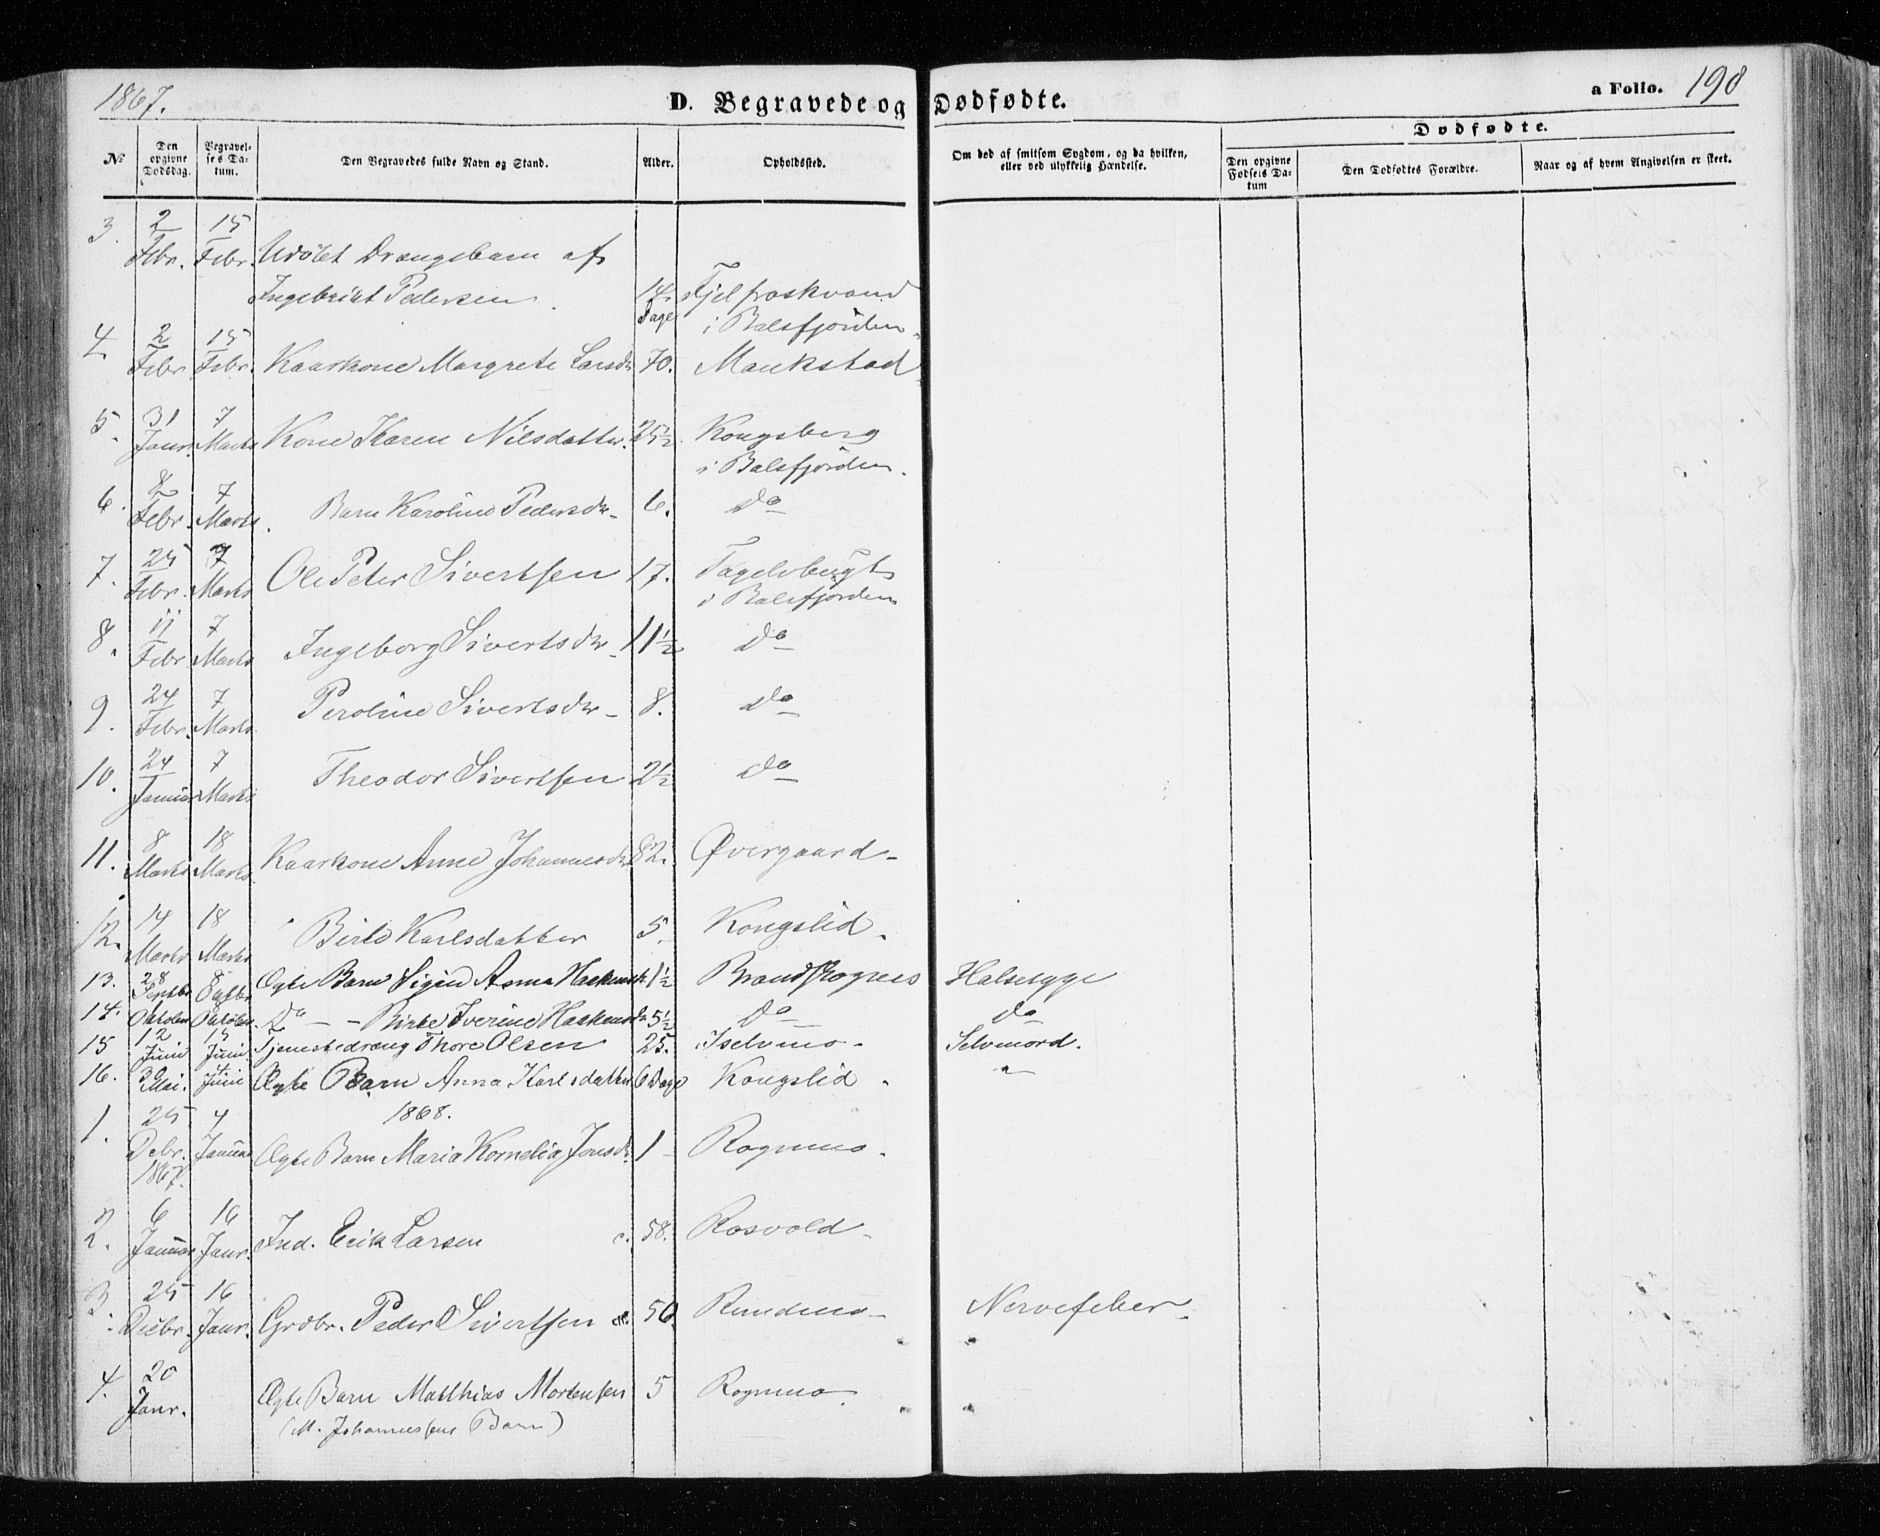 1867.
D. Begravede og Dødfødte.
a Folio. 190
Dødfødte.
No
Den opgivne Dødsdag.
Begravelses Datum.
Den Begravedes fulde Navn og Stand.
Alder.
Opholdssted.
Om død af smitsom Sygdom, og da hvilken, eller ved ulykkelig Hændelse.
Den opgivne Fødsels Datum
Den Dødfødtes Forældre.
Naar og af hvem Angivelsen er skeet.
3. 2 Febr. 15 Febr. Udøbt Drengebarn af
Ingebrikt Pedersen. 14 Dage Fjelfroskvand
i Balsfjorden.
4. 2 Febr 15 Febr. Kaarkone Margrete Larsdr 70. Maukstad.
5. 31 Janr. 7 Marts Kone Karen Nilsdatter. 25½ Kongsberg
i Balsfjorden.
6. 8 Febr. 7 Marts. Barn Karoline Pedersdr 6. do
7. 25 Febr. 7 Marts Ole Peter Sivertsen 17. Tagelvbugt
i Balsfjorden
8. 11 Febr 7 Marts Ingeborg Sivertsdr 11½ do
9. 24 Febr. 7 Marts Peroline Sivertsdr 8. do
10. 24 Januar 7 Marts Theodor Sivertsen 2½ do
11. 8 Marts 18 Marts Kaarkone Anne Johannesdr 82. Øvergaard
12. 14 Marts 18 Marts Berit Karlsdatter 5. Kongslid.
13. 28 Septbr 8 Ægte Barn Anna 1½ Halssyge
14. Oktober Oktober do Birte Iverine 5½ do do
15 12 Juni 15 Juni Tjenestedreng Thore Olsen 25. Iselvmo. Selvmord.
16. 30 Mai. Juni Ægte Barn Anna Karlsdatter 6 Dage Kongslid. "
1868.
1. 25 Debr. 1867. 4 Januar Ægte Barn Maria Kornelia Jonsdr 1 Rognmo.
2. 6 Januar 16 Janr. Ind. Erik Larsen c. 58. Rosvold
3. 25 Decbr. 16 Janr. Grdbr. Peder Sivertsen 50. Rundmo Nervefeber.
4. 20 Janr. Ægte Barn Matthias Mortensen 5 Rognmo.
(M. Johannessens Barn)